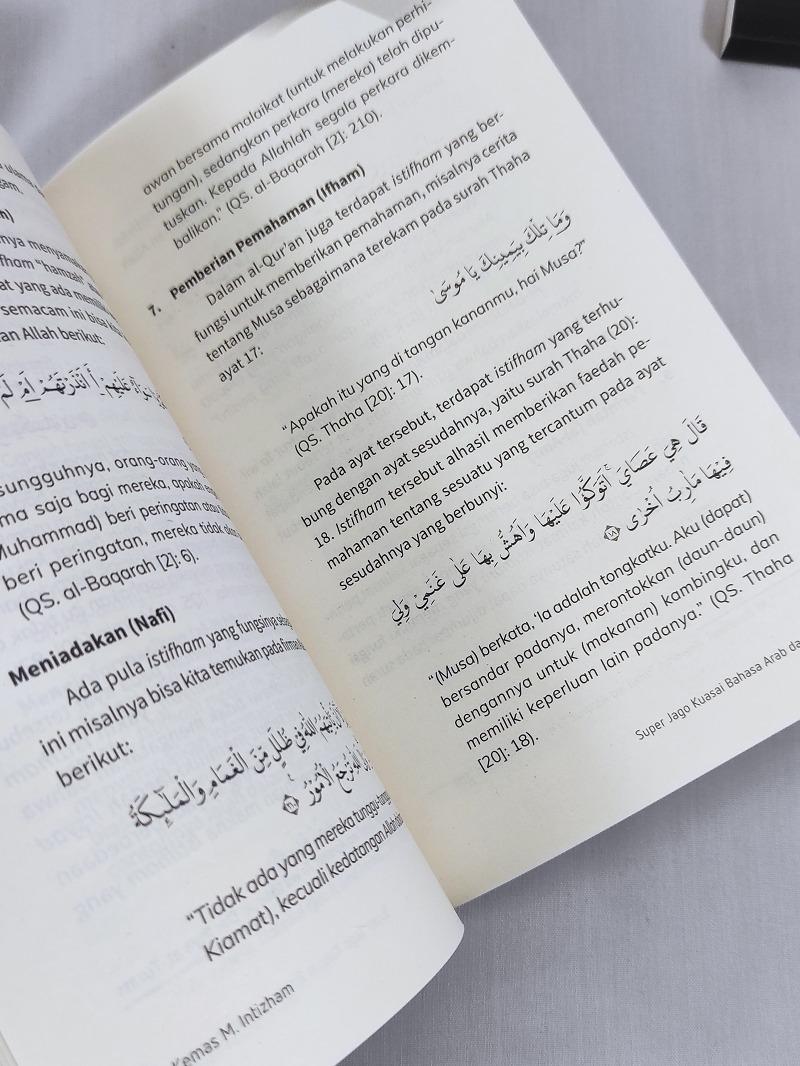 ulam
gam.
h)
nya menyama
fham "hamzah"
at yang ada memili
semacam ini bisa k
an Allah berikut:
عَلَيْهِمْ أَأَنْذَرْتَهُمْ أَمْ لَمْ
sungguhnya, orang-orang yang
ma saja bagi mereka, apakah
Muhammad) beri peringatan atau
beri peringatan, mereka tidak
(QS. al-Baqarah [2]: 6).
Meniadakan (Nafi)
Ada pula istifham yang fungsinya sebag
ini misalnya bisa kita temukan pada firman
berikut:
اللّٰهُ فِيْ ظُلَلٍ مِّنَ الْغَمَامِ وَالْمَلٰۤىِٕكَةُ
تُرْجَعُ الْاُمُوْرُ
"Tidak ada yang mereka tunggu-tunggu
Kiamat), kecuali kedatangan Allah
Kemas M. Intizham
awan bersama malaikat (untuk melakukan perhi-
tungan), sedangkan perkara (mereka) telah dipu-
tuskan. Kepada Allahlah segala perkara dikem-
balikan." (QS. al-Baqarah [2]: 210).
7. Pemberian Pemahaman (Ifham)
Dalam al-Qur'an juga terdapat istifham yang ber-
fungsi untuk memberikan pemahaman, misalnya cerita
tentang Musa sebagaimana terekam pada surah Thaha
ayat 17:
وَمَا تِلْكَ بِيَمِيْنِكَ يَا مُوْسٰى
"Apakah itu yang di tangan kananmu, hai Musa?"
(QS. Thaha [20]: 17).
Pada ayat tersebut, terdapat istifham yang terhu-
bung dengan ayat sesudahnya, yaitu surah Thaha (20):
18. Istifham tersebut alhasil memberikan faedah pe-
mahaman tentang sesuatu yang tercantum pada ayat
sesudahnya yang berbunyi:
قَالَ هِيَ عَصَايَۚ اَتَوَكَّؤُا عَلَيْهَا وَاَهُشُّ بِهَا عَلٰى غَنَمِيْ وَلِيَ
فِيْهَا مَاٰرِبُ اُخْرٰى ١٨
"(Musa) berkata, 'Ia adalah tongkatku. Aku (dapat)
bersandar padanya, merontokkan (daun-daun)
dengannya untuk (makanan) kambingku, dan
memiliki keperluan lain padanya." (QS. Thaha
[20]: 18).
Super Jago Kuasai Bahasa Arab da